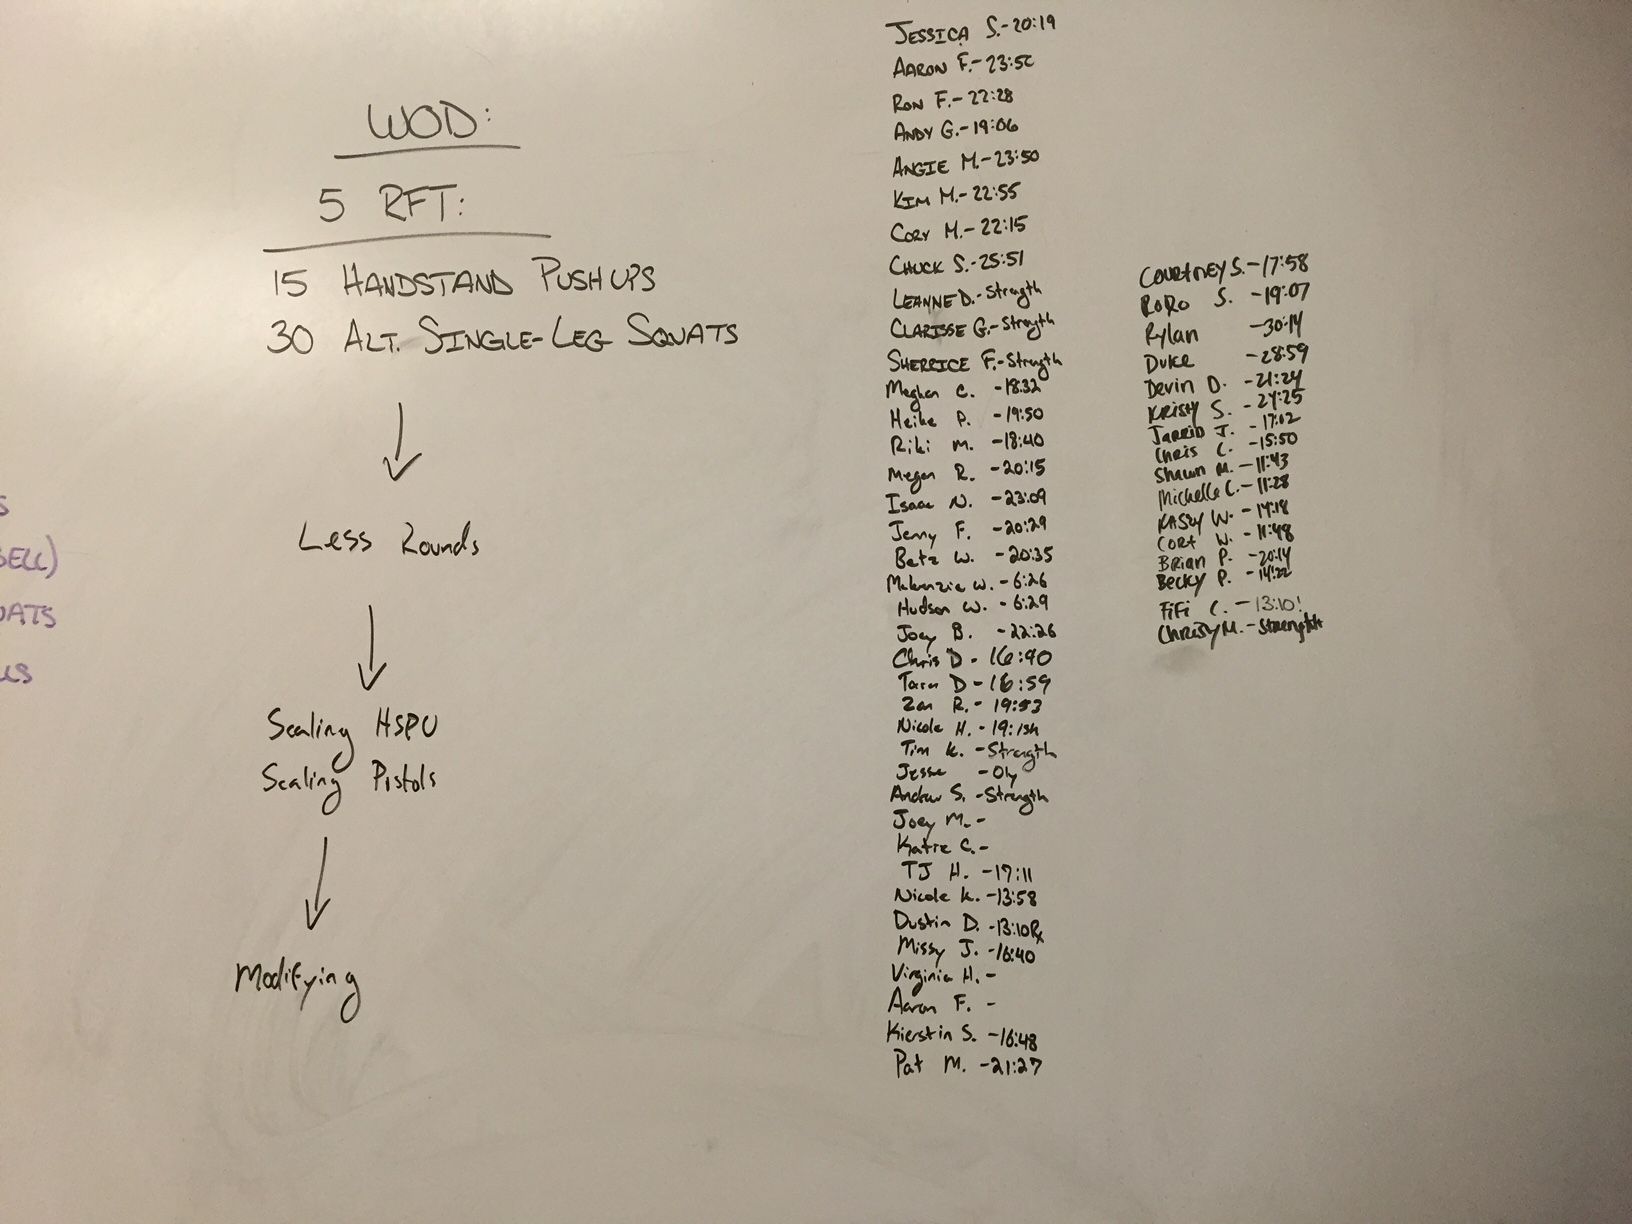 WOD:
5 RFT:
15 HANDSTAND PUSHUPS
30 ALT. SINGLE-LEG SQUATS
Less Rounds
Scaling HSPU
Scaling Pistols
Modifying
S
BELL)
UATS
LS
JESSICA S.-20:19
AARON F.-23:50
RON F.-22:28
ANDY G.-19:06
ANGIE M.-23:50
KIM M.-22:55
CORY M.-22:15
CHUCK S.-25:51
LEANNE D.-Strength
CLARISSE G.-Strength
SHERRICE F.-Strength
Meghan C. -18:32
Heike P. -19:50
Riki M. -18:40
Megan R. -20:15
Isaac N. -23:09
Jenny F. -20:29
Betz W. -20:35
Mckenzie W. -6:26
Hudson W. -6:29
Joey B. -22:26
Chris D - 16:40
Tara D - 16:59
Zan R. - 19:53
Nicole H. - 19:ish
Tim K. -Strength
Jesse -Oly
Andrew S. -Strength
Joey M. -
Katie C. -
TJ H. -17:11
Nicole K. -13:58
Dustin D. -13:10Rx
Missy J. -16:40
Virginia H. -
Aaron F. -
Kierstin S. -16:48
Pat M. -21:27
COURTNEY S.-17:58
RoRo S. -19:07
Rylan -30:14
Duke -28:59
Devin D. -21:24
Kristy S. -24:25
Jarrid J. -17:02
Chris C. -15:50
Shawn M. -11:43
Michelle C. -11:28
KASEY W. -14:18
CORT W. -11:48
BRIAN P. -20:14
BECKY P. -14:22
FiFi C. -13:10!
Christy M. -Strength